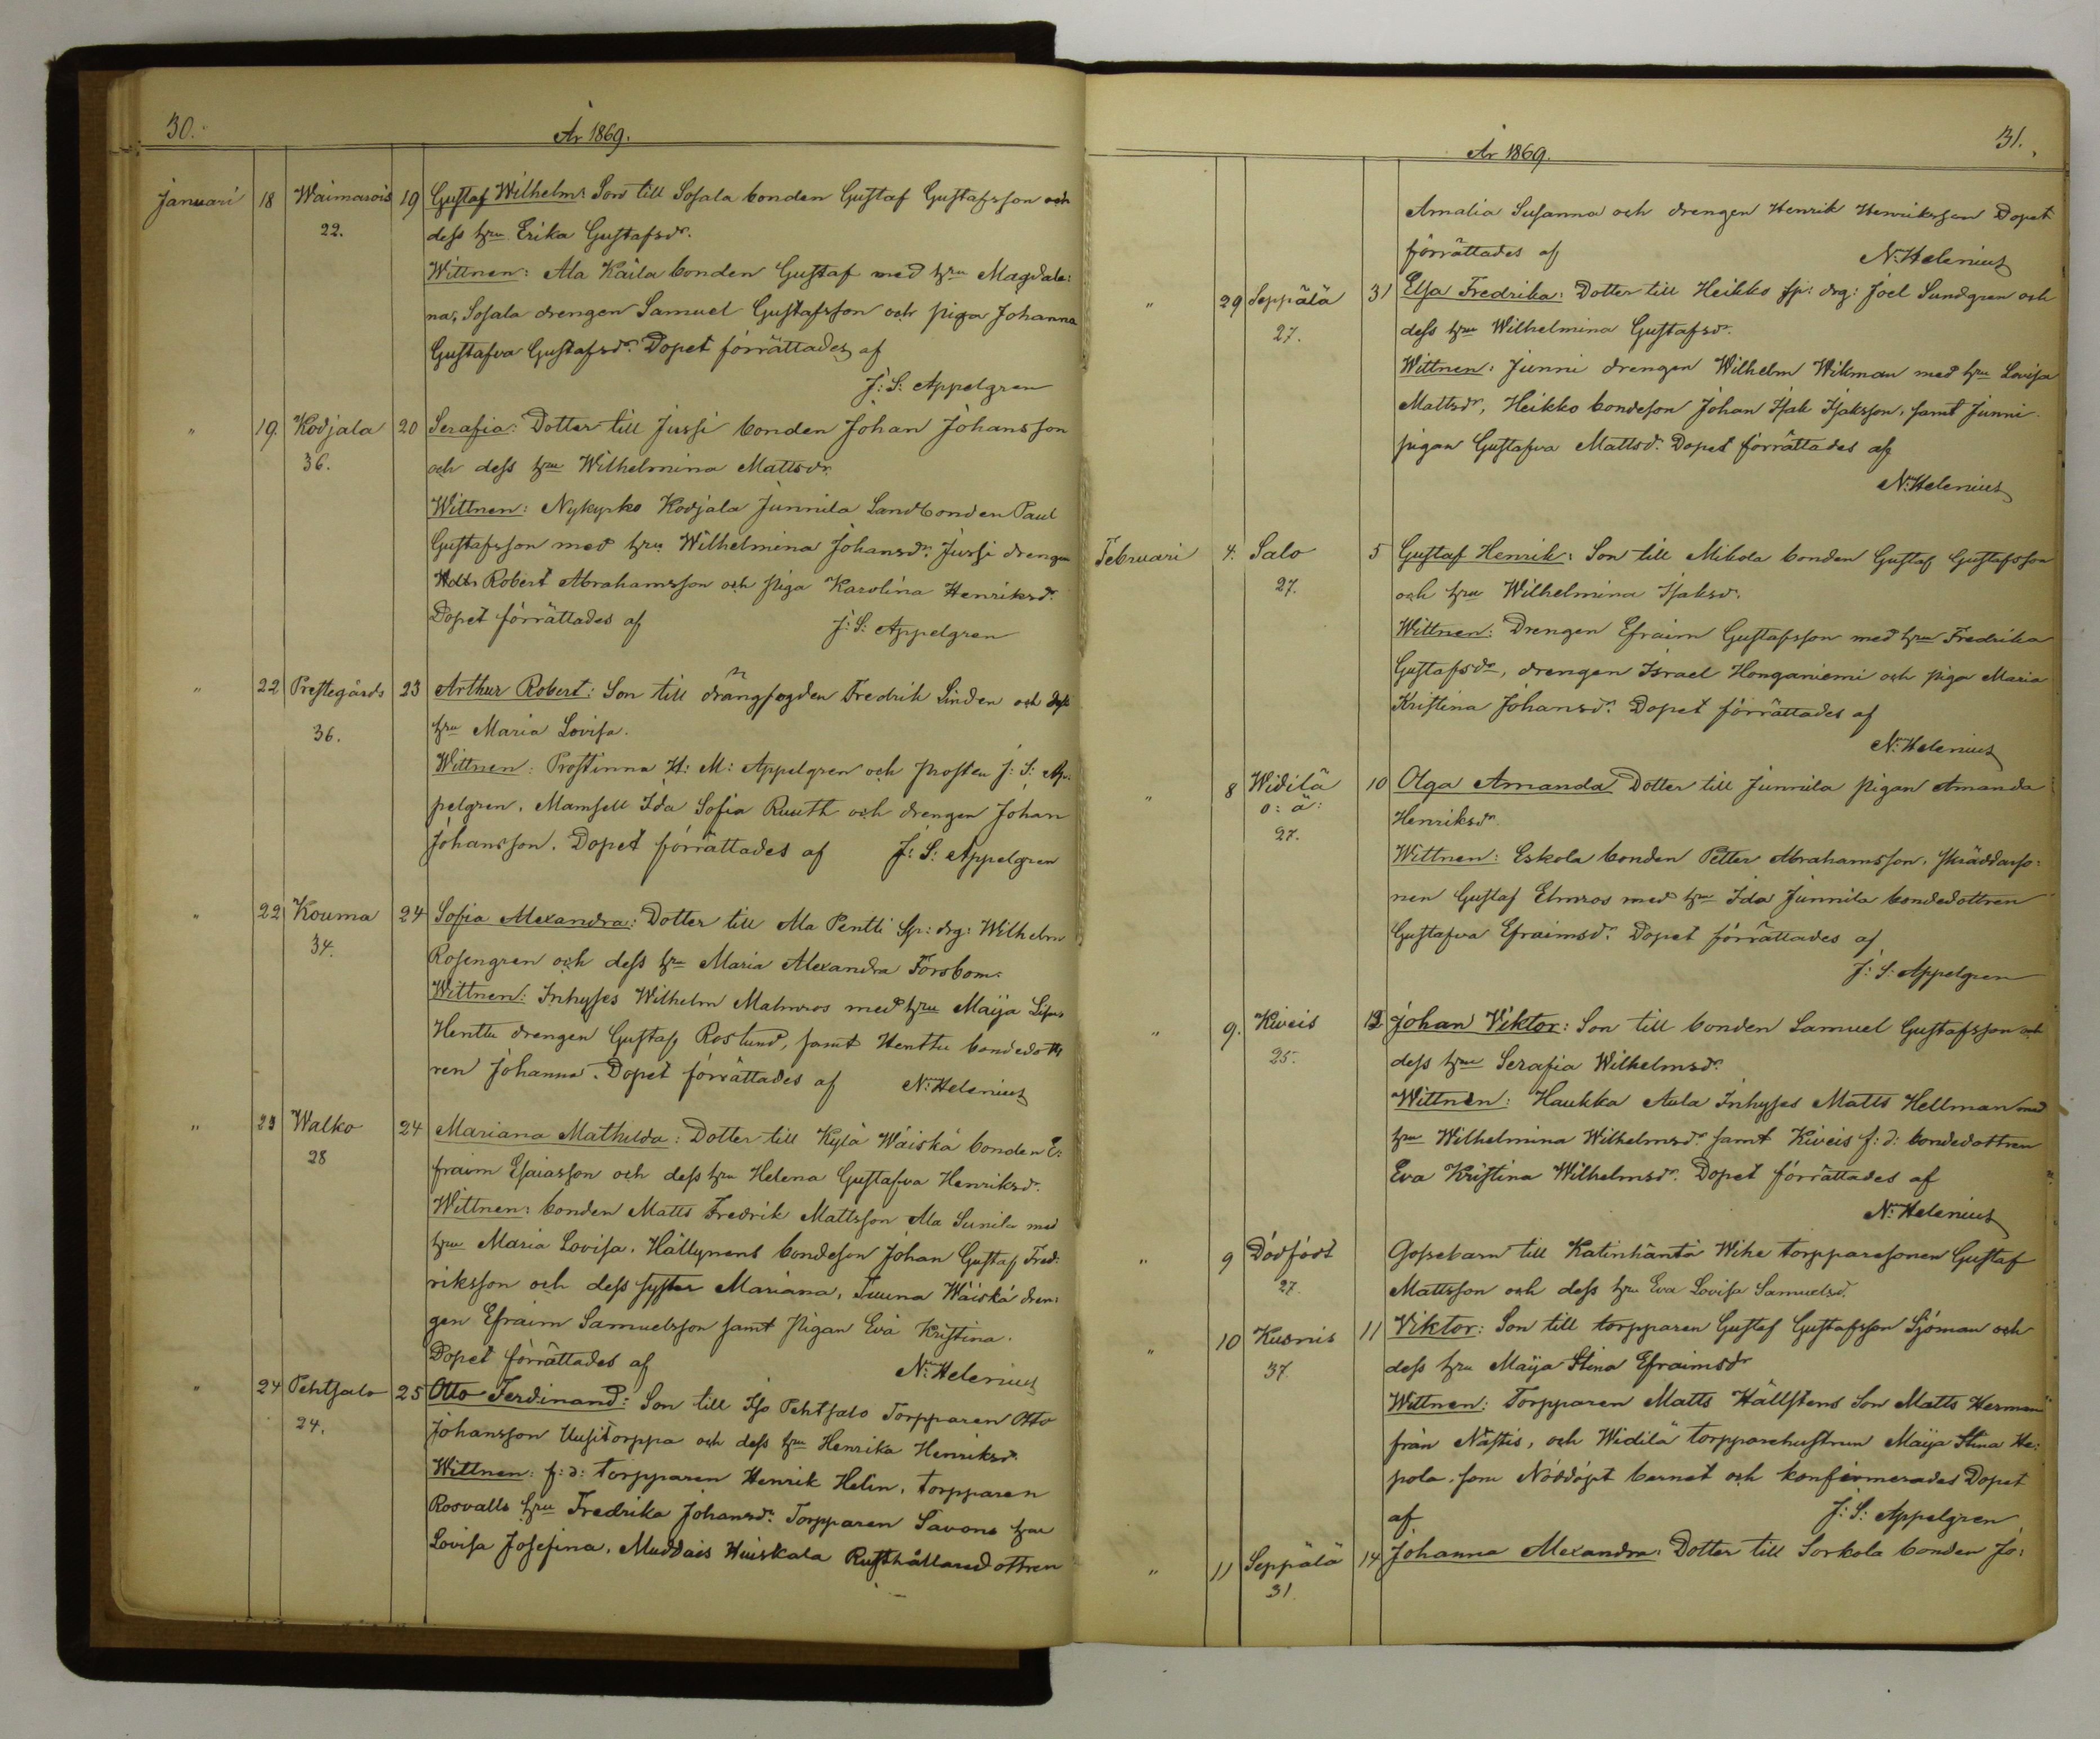 30.
År 1869.
Januari 18 Waimarois 19 Gustaf Wilhelm: Son till Sosala bonden Gustaf Gustafsson och
22. dess hru Erika Gustafsdr.
Wittnen: Ala Kaila bonden Gustaf med hru Magdale:
na, Sosala drengen Samuel Gustafsson och piga Johanna
Gustafva Gustafsdr. Dopet förrättades af
J: S: Appelgren
" 19. Kodjala 20 Serafia: Dotter till Jussi bonden Johan Johansson
36. och dess hru Wilhelmina Mattsdr.
Wittnen: Nykyrko Kodjala Junnila Landbonden Paul
Gustafsson med hru Wilhelmina Johansdr. Jussi drengen
Robert Abrahamsson och piga Karolina Henriksdr.
Dopet förrättades af J: S: Appelgren
" 22 Prestegårds 23 Arthur Robert: Son till drängfogden Fredrik Linden och dess
36. hru Maria Lovisa.
Wittnen: Prostinna H: M: Appelgren och prosten J: S: Ap:
pelgren, Mamsell Ida Sofia Ruuth och drengen Johan
Johansson. Dopet förrättades af J: S: Appelgren
" 22 Kouma 24 Sofia Alexandra: Dotter till Ala Pentti Sp: drg: Wilhelm
34. Rosengren och dess hru Maria Alexandra Forsbom.
Wittnen: Inhyses Wilhelm Malmros med hru Maija Lisa
Henttu drengen Gustaf Roslund, samt Henttu bondedott
ren Johanna. Dopet förrättades af N: Helenius
" 23 Walko 24 Mariana Mathilda: Dotter till Kylä Wäiskä bonden E:
28 fraim Esaiasson och dess hru Helena Gustafva Henriksdr.
Wittnen: bonden Matts Fredrik Mattsson Ala Sunila med
hru Maria Lovisa. Hällynens bondeson Johan Gustaf Fred:
riksson och dess syster Mariana, Tuuna Wäiskä dren:
gen Efraim Samuelsson samt pigan Eva Kristina.
Dopet förrättades af N: Helenius
" 24 Pehtsalo 25 Otto Ferdinand: Son till Iso Pehtsalo Torpparen Otto
24. Johansson Uusitorppa och dess hru Henrika Henriksdr.
Wittnen: f: d: torpparen Henrik Helin, torpparen
Rosvalls hru Fredrika Johansdr. Torpparen Savons hru
Lovisa Josefina, Muddais Huiskala Rusthållaredottren
31.
År 1869.
Amalia Susanna och drengen Henrik Henriksson Dopet
förrättades af N: Helenius
" 29 Seppälä 31 Elsa Fredrika: Dotter till Heikko sp: drg: Joel Sundgren och
27. dess hru Wilhelmina Gustafsdr.
Wittnen: Junni drengen Wilhelm Wikman med hru Lovisa
Mattsdr, Heikko bondeson Johan Isak Isaksson, samt Junni
pigan Gustafva Mattsd. Dopet förrättades af
N: Helenius
Februari 4. Salo 5 Gustaf Henrik: Son till Mikola bonden Gustaf Gustafsson
27. och hru Wilhelmina Isaksd.
Wittnen: Drengen Efraim Gustafsson med hru Fredrika
Gustafsdr, drengen Israel Honganiemi och piga Maria
Kristina Johansd. Dopet förrättades af
N: Helenius
" 8 Widilä 10 Olga Amanda Dotter till Junnila pigan Amanda
o: ä: Henriksdr.
27.
Wittnen: Eskola bonden Petter Abrahamsson, skräddareso:
nen Gustaf Elmros med hru Ida Junnila bondedottren
Gustafva Efraimsdr. Dopet förrättades af
J: S: Appelgren
" 9. Kiveis 12 Johan Viktor: Son till bonden Samuel Gustafsson och
25. dess hru Serafia Wilhelmsdr.
Wittnen: Haukka Aula Inhyses Matts Hellman med
hru Wilhelmina Wilhelmsd. samt Kiveis f: d: bondedottren
Eva Kristina Wilhelmsd. Dopet förrättades af
N: Helenius
" 9 Dödfödt Gossebarn till Katinhäntä Wihe torpparesonen Gustaf
27. Mattsson och dess hru Eva Lovisa Samuelsd.
" 10 Kusnis 11 Viktor: Son till torpparen Gustaf Gustafsson Sjöman och
37. dess hru Maija Stina Efraimsdr
Wittnen: Torpparen Matts Hällstens Son Matts Herman
från Nästis, och Widilä torpparehustrun Maija Stina He:
pola, som Nöddöpt barnet och konfirmerades Dopet
af J: S: Appelgren
" 11 Seppälä 14 Johanna Alexandra: Dotter till Sorkola bonden Jo:
31.